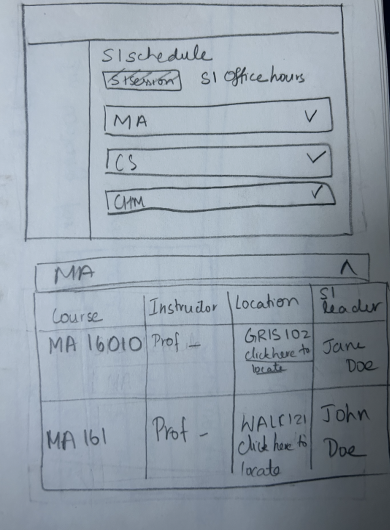 SI schedule
SI session SI Office hours
MA
CS
CHM
MA
Course Instructor Location SI leader
MA 16010 Prof - GRIS 102 click here to locate Jane Doe
MA 161 Prof - WALC 121 Click here to locate John Doe